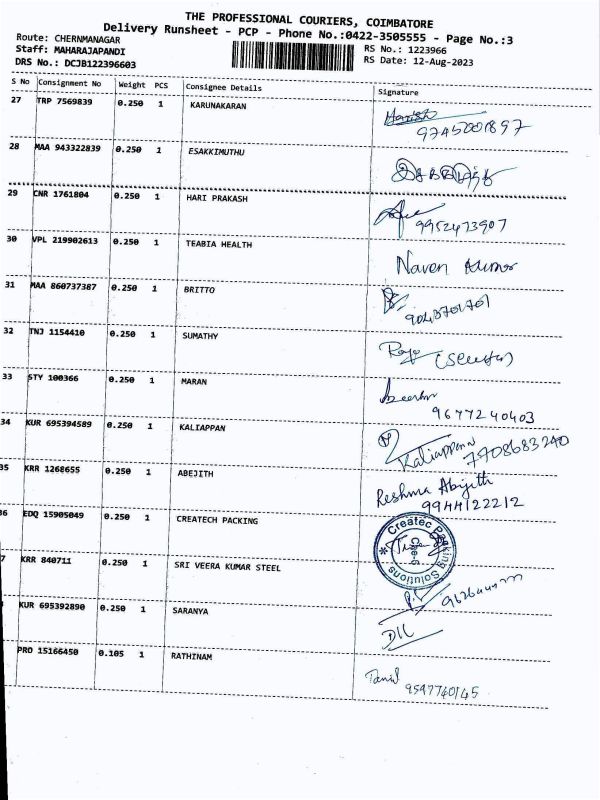 THE PROFESSIONAL COURIERS, COIMBATORE
Delivery Runsheet - PCP - Phone No.:0422-3505555 - Page No.:3
Route: CHERNMANAGAR
RS No.: 1223966
Staff: MAHARAJAPANDI
RS Date: 12-Aug-2023
DRS No.: DCJB122396603
S No Consignment No Weight PCS Consignee Details Signature
27 TRP 7569839 0.250 1 KARUNAKARAN Harish
9745001897
28 MAA 943322839 0.250 1 ESAKKIMUTHU
29 CNR 1761804 0.250 1 HARI PRAKASH
9952473907
30 VPL 219902613 0.250 1 TEABIA HEALTH Naven Kumar
31 MAA 860737387 0.250 1 BRITTO
9043701701
32 TNJ 1154410 0.250 1 SUMATHY
33 STY 100366 0.250 1 MARAN
9677240403
34 KUR 695394589 0.250 1 KALIAPPAN Kaliappana
7708683240
35 KRR 1268655 0.250 1 ABEJITH Reshma Abijith
9944122212
36 EDQ 15905049 0.250 1 CREATECH PACKING
Createc Packing Solutions
Cbe-6
7 KRR 840711 0.250 1 SRI VEERA KUMAR STEEL
KUR 695392890 0.250 1 SARANYA
PRO 15166450 0.105 1 RATHINAM
9597740145